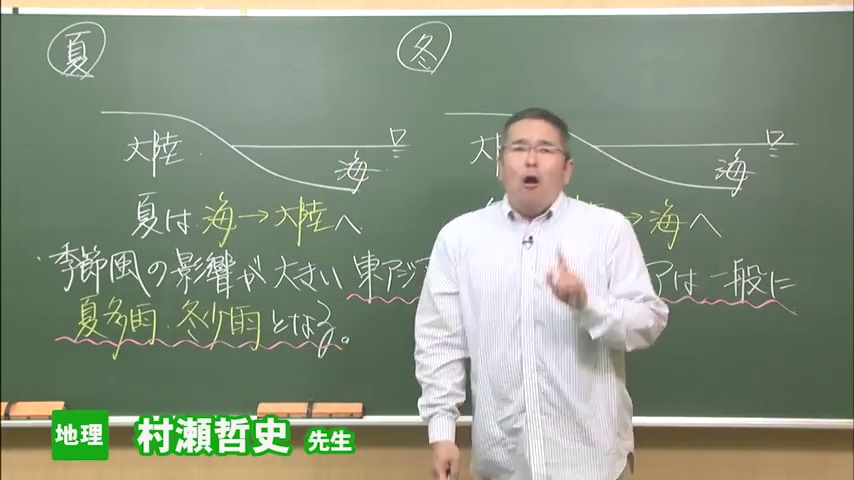 夏
冬
大陸
海
大
海
夏は 海→大陸へ
→海へ
季節風の影響が大きい 東アジ アは 一般に
夏多雨・冬少雨となる。
地理 村瀬哲史 先生